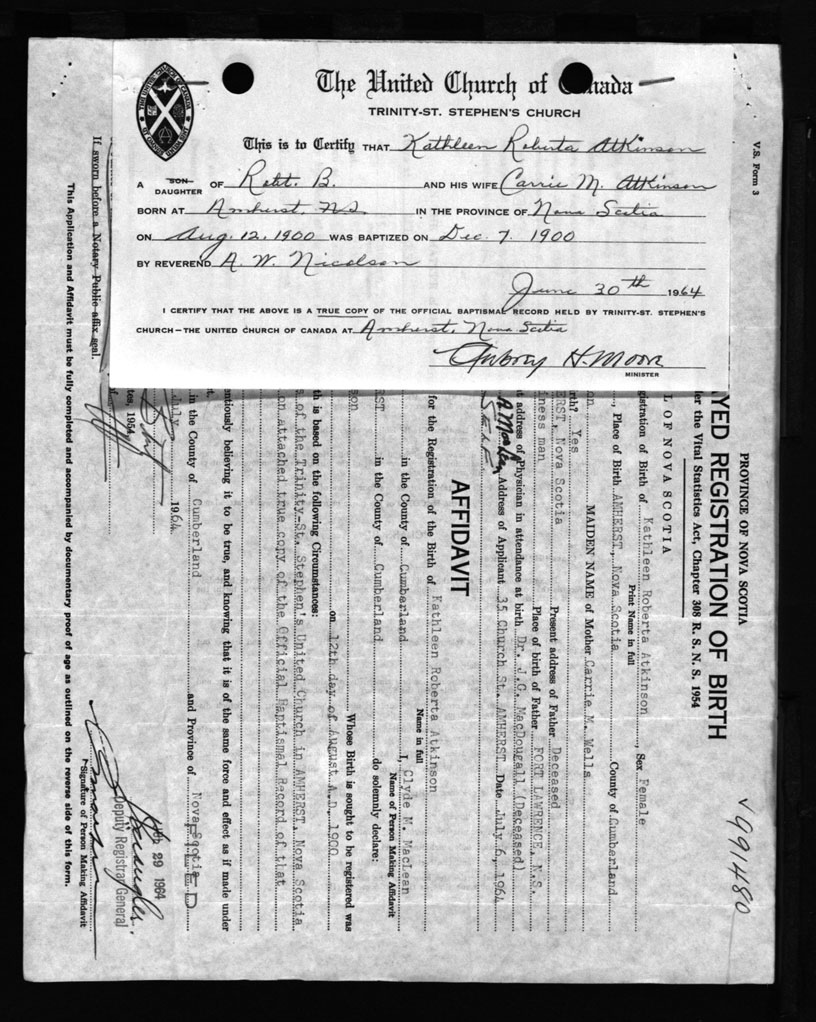 The United Church of Canada
TRINITY-ST. STEPHEN'S CHURCH
This is to Certify THAT Kathleen Roberta Atkinson
A SON DAUGHTER OF Robt. B. AND HIS WIFE Carrie M. Atkinson
BORN AT Amherst, N.S. IN THE PROVINCE OF Nova Scotia
ON Aug. 12, 1900 WAS BAPTIZED ON Dec. 7, 1900
BY REVEREND A. W. Nicolson
June 30th 1964
I CERTIFY THAT THE ABOVE IS A TRUE COPY OF THE OFFICIAL BAPTISMAL RECORD HELD BY TRINITY-ST. STEPHEN'S
CHURCH—THE UNITED CHURCH OF CANADA AT Amherst, Nova Scotia
Aubrey H. Moore
MINISTER
V.S. Form 3
V991480
PROVINCE OF NOVA SCOTIA
YED REGISTRATION OF BIRTH
er the Vital Statistics Act, Chapter 308 R. S. N. S. 1954
L OF NOVA SCOTIA
gistration of Birth of Kathleen Roberta Atkinson, Sex Female
Print Name in full
, Place of Birth AMHERST, Nova Scotia County of Cumberland
on MAIDEN NAME of Mother Carrie M. Wells
rth? Yes
ERST, Nova Scotia Present address of Father Deceased
iness man Place of birth of Father FORT LAWRENCE, N.S.
t address of Physician in attendance at birth Dr. J.G. MacDougall (Deceased)
Address of Applicant 35 Church St. AMHERST Date July 6, 1964
AFFIDAVIT
for the Registration of the Birth of Kathleen Roberta Atkinson
Name in full
in the County of Cumberland I, Clyde M. MacLean
Name of Person Making Affidavit
RST in the County of Cumberland do solemnly declare:
son Whose Birth is sought to be registered was
on 12th day of August A.D. 1900
th is based on the following Circumstances:
s of the Trinity-St. Stephen's United Church in AMHERST, Nova Scotia
on attached true copy of the Official Baptismal Record of that
entiously believing it to be true, and knowing that it is of the same force and effect as if made under
in the County of Cumberland and Province of Nova Scotia
July 1964
FEB 29 1964
Deputy Registrar General
tes, 1954
*Signature of Person Making Affidavit
If sworn before a Notary Public affix seal.
This Application and Affidavit must be fully completed and accompanied by documentary proof of age as outlined on the reverse side of this form.